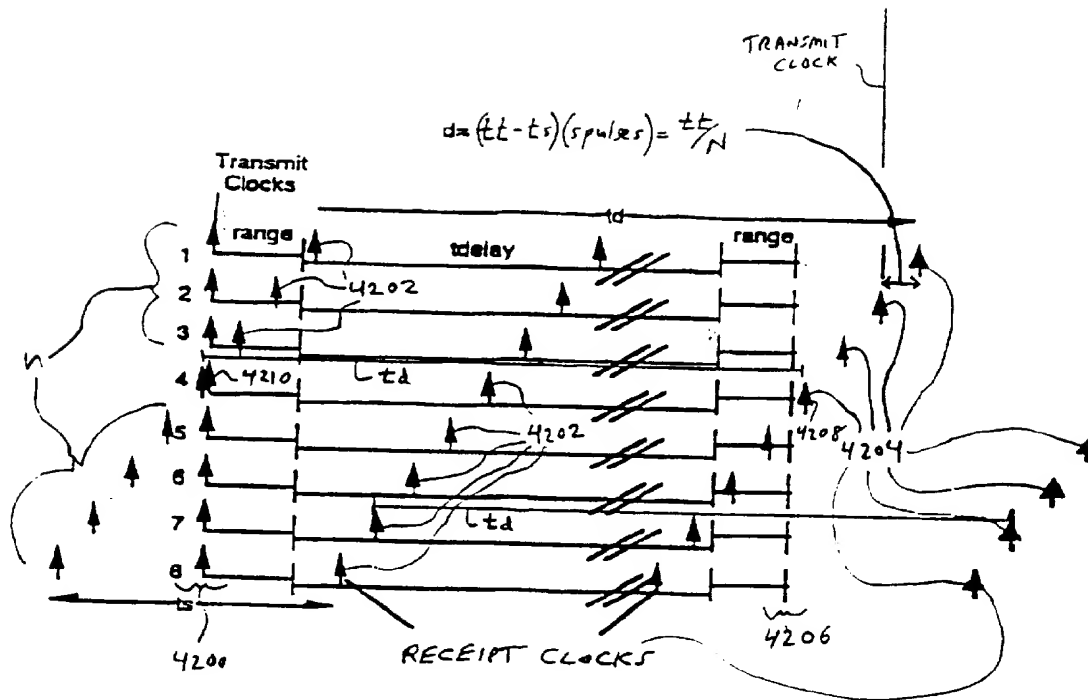 TRANSMIT
CLOCK
d= (tt - ts)(spulses) = tt/N
Transmit
Clocks
td
range
tdelay
range
1
2
4202
3
n
td
4
4210
4208
4204
5
4202
6
7
td
8
ts
4200
RECEIPT CLOCKS
4206